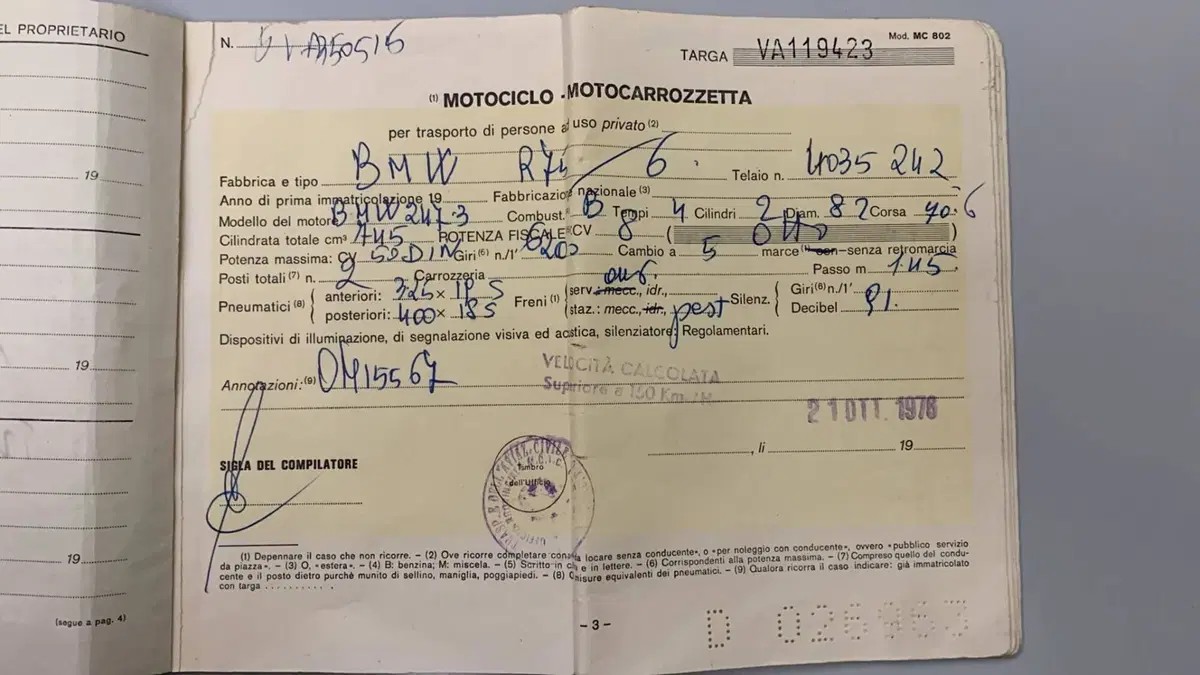 EL PROPRIETARIO
19
19
19
(segue a pag. 4)
Mod. MC 802
N.
TARGA VA119423
(1) MOTOCICLO - MOTOCARROZZETTA
per trasporto di persone a uso privato (2)
Fabbrica e tipo BMW R75 6 Telaio n. 4035 242
Anno di prima immatricolazione 19 Fabbricazio nazionale (3)
Modello del motore BMW 247.3 Combust. B Tempi 4 Cilindri 2 Diam. 82 Corsa 70.6
Cilindrata totale cm³ 745 POTENZA FISCALE CV 8 ( OTTO )
Potenza massima: CV 50 DIN Giri (6) n./1' 6200 Cambio a 5 marce con-senza retromarcia
Posti totali (7) n. 2 Carrozzeria Passo m 1.45
Pneumatici (8) { anteriori: 325 × 19 S Freni (1) { serv.: mecc., idr., Silenz. { Giri (6) n./1'
posteriori: 400 × 18 S staz.: mecc., idr., Decibel 91.
Dispositivi di illuminazione, di segnalazione visiva ed acstica, silenziatore: Regolamentari.
Annotazioni: (9) OM15567
VELOCITÀ CALCOLATA
Superiore a 150 Km/H
21 OTT. 1976
, li 19
SIGLA DEL COMPILATORE
Timbro
dell'Ufficio
(1) Depennare il caso che non ricorre. – (2) Ove ricorre completare con a locare senza conducente», o «per noleggio con conducente», ovvero «pubblico servizio
da piazza». – (3) O, «estera». – (4) B: benzina; M: miscela. – (5) Scritto in c e in lettere. – (6) Corrispondenti alla potenza massima. – (7) Compreso quello del condu-
cente e il posto dietro purchè munito di sellino, maniglia, poggiapiedi. – (8) misure equivalenti dei pneumatici. – (9) Qualora ricorra il caso indicare: già immatricolato
con targa . . . . . . . . . .
– 3 –
D 026963